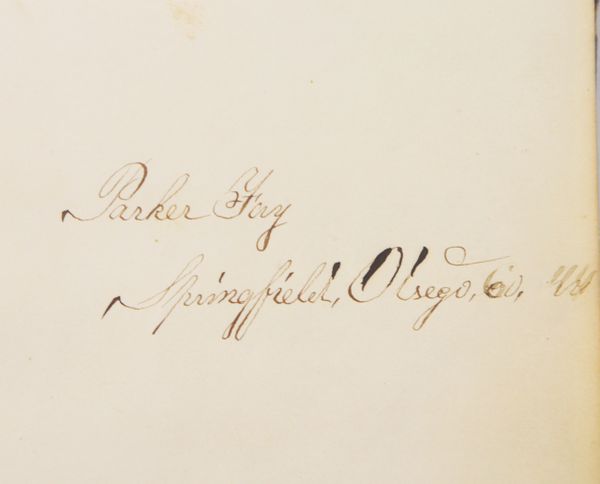 Parker Fay
Springfield, Otsego, Co,